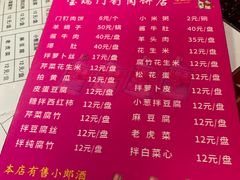 宝瑞门钉肉饼店
门钉肉饼 6元/个
酱牛肉 50元/盘
酱肚 40元/盘
拌萝卜丝 17元/盘
芹菜花生米 12元/盘
拍黄瓜 12元/盘
皮蛋豆腐 12元/盘
糖拌西红柿 12元/盘
芹菜腐竹 12元/盘
拌豆腐丝 12元/盘
拌纯腐竹 12元/盘
小米粥 2元/碗
酱牛肉
羊头肉 35元/盘
花生米 12元/盘
腐竹花生米 12元/盘
松花蛋 12元/盘
拌萝卜皮 12元/盘
小葱拌豆腐 12元/盘
麻豆腐 12元/盘
老虎菜 12元/盘
拌白菜心 12元/盘
本店有售小郎酒